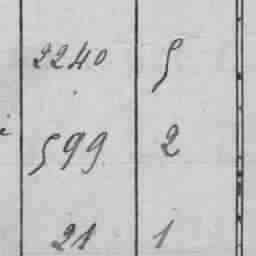 2240 5
599 2
21 1